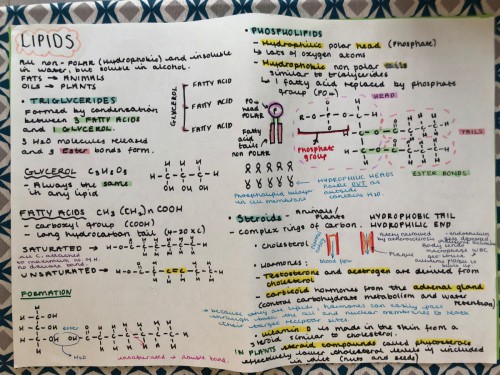 LIPIDS
All non-POLAR (Hydrophobic) and insoluble
in water, but soluble in alcohol.
FATS → ANIMALS
OILS → PLANTS
• TRIGLYCERIDES
Formed by condensation
between 3 FATTY ACIDS
and 1 GLYCEROL.
3 H₂O molecules released
and 3 Ester bonds form.
GLYCEROL
FATTY ACID
FATTY ACID
FATTY ACID
GLYCEROL C₃H₈O₃
- Always the same
in any lipid
H H H
H-C-C-C-H
OH OH OH
FATTY ACIDS CH₃(CH₂)n COOH
- carboxyl group (COOH)
- long hydrocarbon tail
SATURATED →
no double bond.
UNSATURATED →
C=C
FORMATION
ester
H₂O
unsaturated → double bond.
• PHOSPHOLIPIDS
- Hydrophilic polar head (Phosphate)
↳ lots of oxygen atoms
- Hydrophobic non polar tails
similar to triglycerides
↳ 1 fatty acid replaced by phosphate
group (PO₄)
HEAD
PO₄
head
POLAR
P
Fatty
acid
tails
non POLAR
Phosphate
group
TAILS
ESTER BONDS
Phospholipid bilayer
in cell membrane
HYDROPHILIC HEADS
FACE OUT as
outside
contains H₂O.
Steroids - animals/
Plants
HYDROPHOBIC TAIL
HYDROPHILIC END
- complex rings of carbon.
• cholesterol
blood flow
• Hormones:
- Testosterone and oestrogen are derived from
cholesterol
- corticoid hormones from the adrenal gland
(control carbohydrate metabolism and water
retention)
because they are lipids, hormones can easily pass
through both the cell and nuclear membranes to reach
their target receptor sites.
- vitamin D is made in the skin from a
steroid similar to cholesterol.
IN PLANTS steroid compounds called phytosterols
effectively lower cholesterol levels if included
in diet (nuts and seeds)